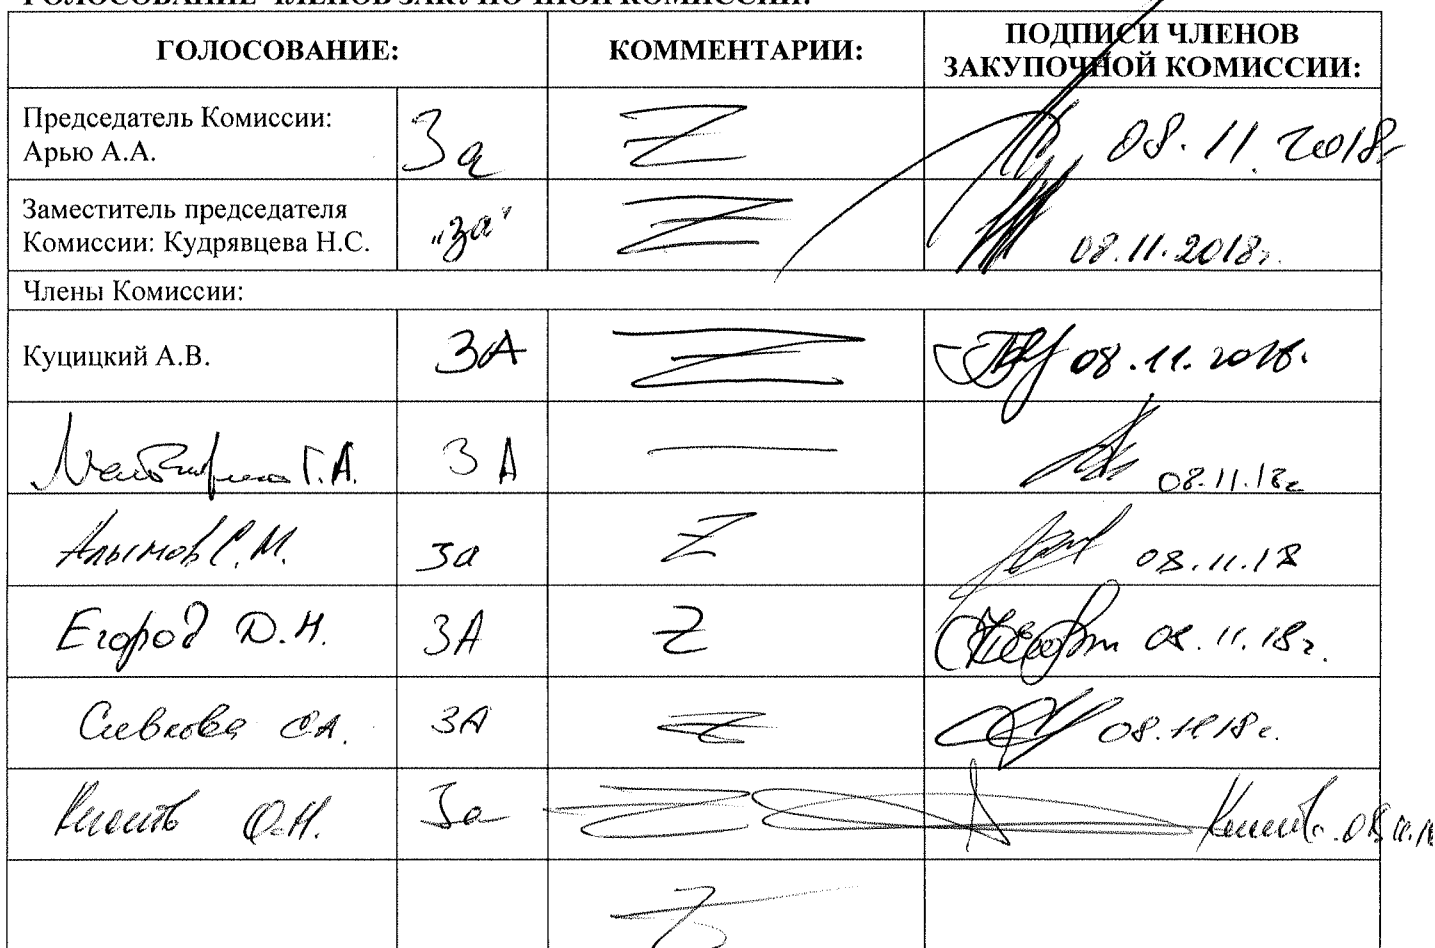 ГОЛОСОВАНИЕ ЧЛЕНОВ ЗАКУПОЧНОЙ КОМИССИИ:
ГОЛОСОВАНИЕ: КОММЕНТАРИИ: ПОДПИСИ ЧЛЕНОВ
ЗАКУПОЧНОЙ КОМИССИИ:
Председатель Комиссии:
Арью А.А. За 08.11.2018г
Заместитель председателя
Комиссии: Кудрявцева Н.С. "за" 08.11.2018г.
Члены Комиссии:
Куцицкий А.В. ЗА 08.11.2018.
Г.А. ЗА 08.11.18г
Алымов С.М. за 08.11.18
Егоров Д.Н. ЗА 08.11.18г.
Сивкова С.А. ЗА 08.11.18г.
О.Н. За 08.11.18